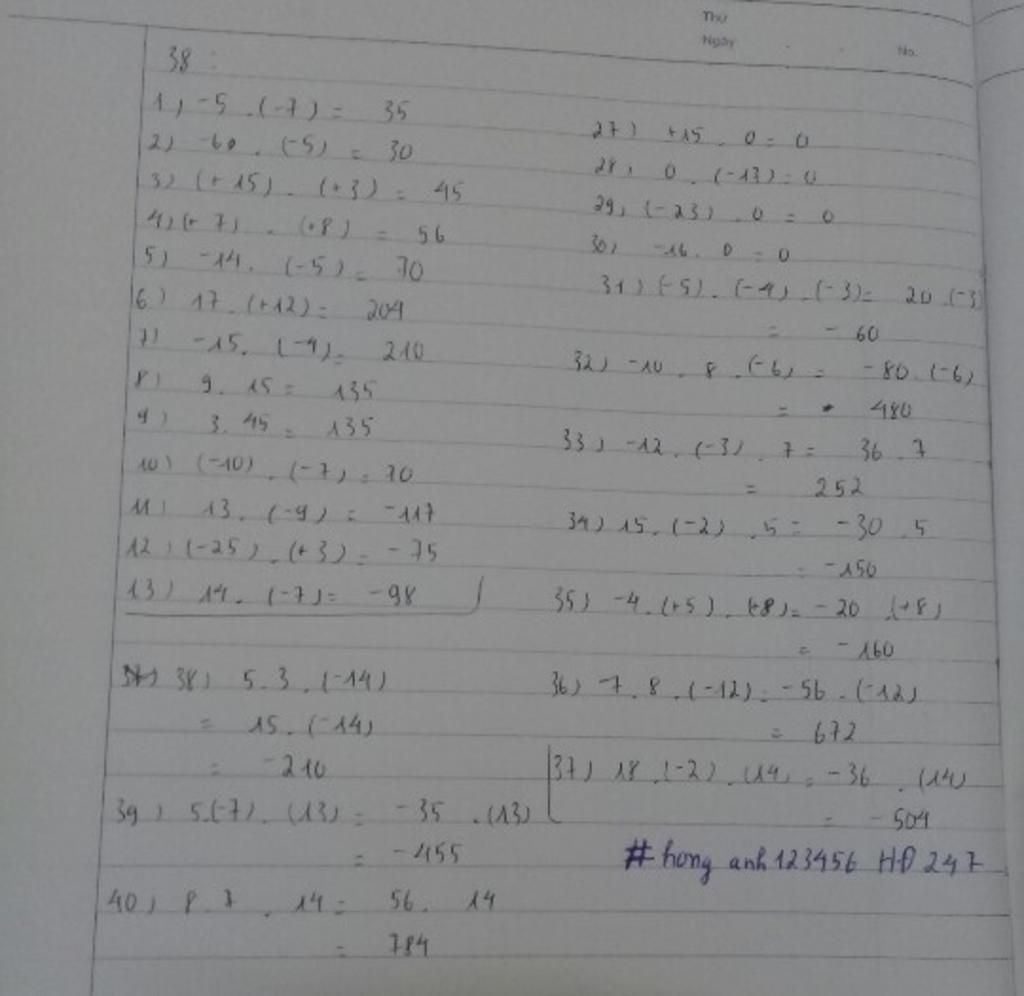 Thứ
Ngày
No.
38 :
1) -5 . (-7) = 35
2) -60 . (-5) = 30
3) (+15) . (+3) = 45
4) (+7) . (+8) = 56
5) -14 . (-5) = 70
6) 17 . (+12) = 204
7) -15 . (-4) = 210
8) 9 . 15 = 135
9) 3 . 45 = 135
10) (-10) . (-7) = 70
11) 13 . (-9) = -117
12) (-25) . (+3) = -75
13) 14 . (-7) = -98
38) 5 . 3 . (-14)
= 15 . (-14)
= -210
39) 5.(-7) . (13) = -35 . (13)
= -455
40) 8 . 7 . 14 = 56 . 14
= 784
27) +15 . 0 = 0
28) 0 . (-13) = 0
29) (-23) . 0 = 0
30) -16 . 0 = 0
31) (-5) . (-4) . (-3) = 20 . (-3)
= -60
32) -10 . 8 . (-6) = -80 . (-6)
= 480
33) -12 . (-3) . 7 = 36 . 7
= 252
34) 15 . (-2) . 5 = -30 . 5
= -150
35) -4 . (+5) . (+8) = -20 . (+8)
= -160
36) -7 . 8 . (-12) = -56 . (-12)
= 672
37) 18 . (-2) . (14) = -36 . (14)
= -504
# hong anh123456 HĐ 247